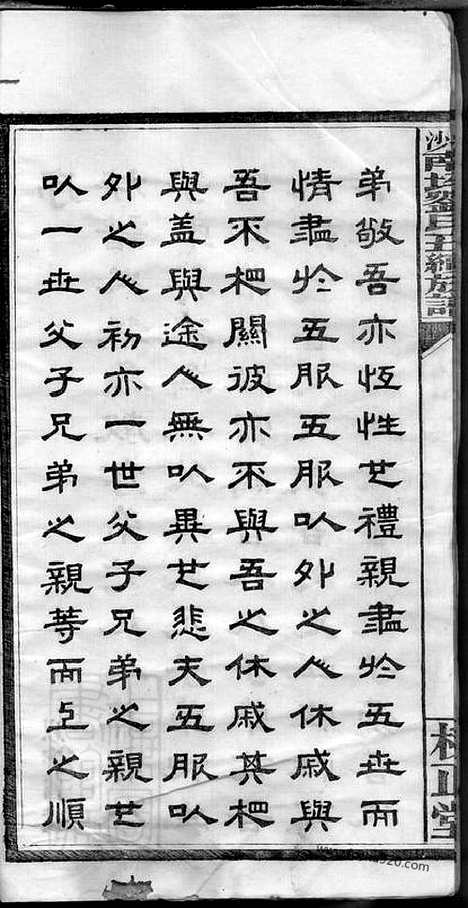 劉氏五續族譜
弟敬吾亦恆性也禮親盡於五世而
情盡於五服五服以外之人休戚與
吾不相關彼亦不與吾之休戚其相
與蓋與途人無以異也悲夫五服以
外之人初亦一世父子兄弟之親也
以一世父子兄弟之親等而上之順